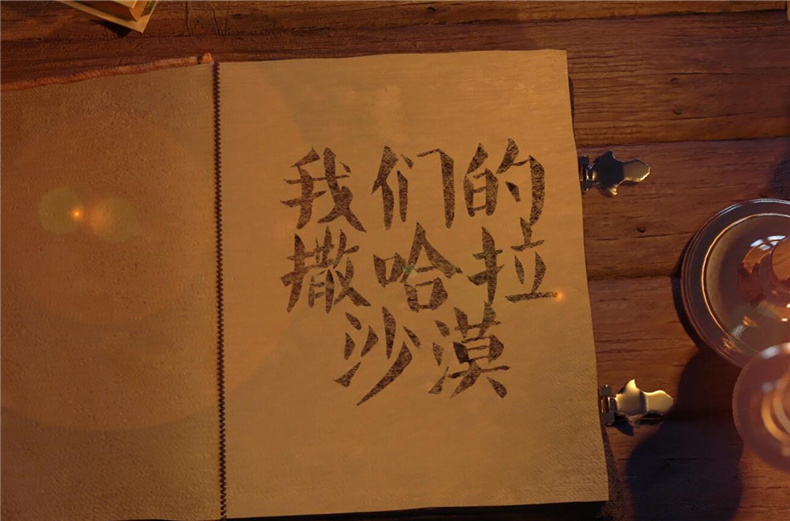 我们的
撒哈拉
沙漠